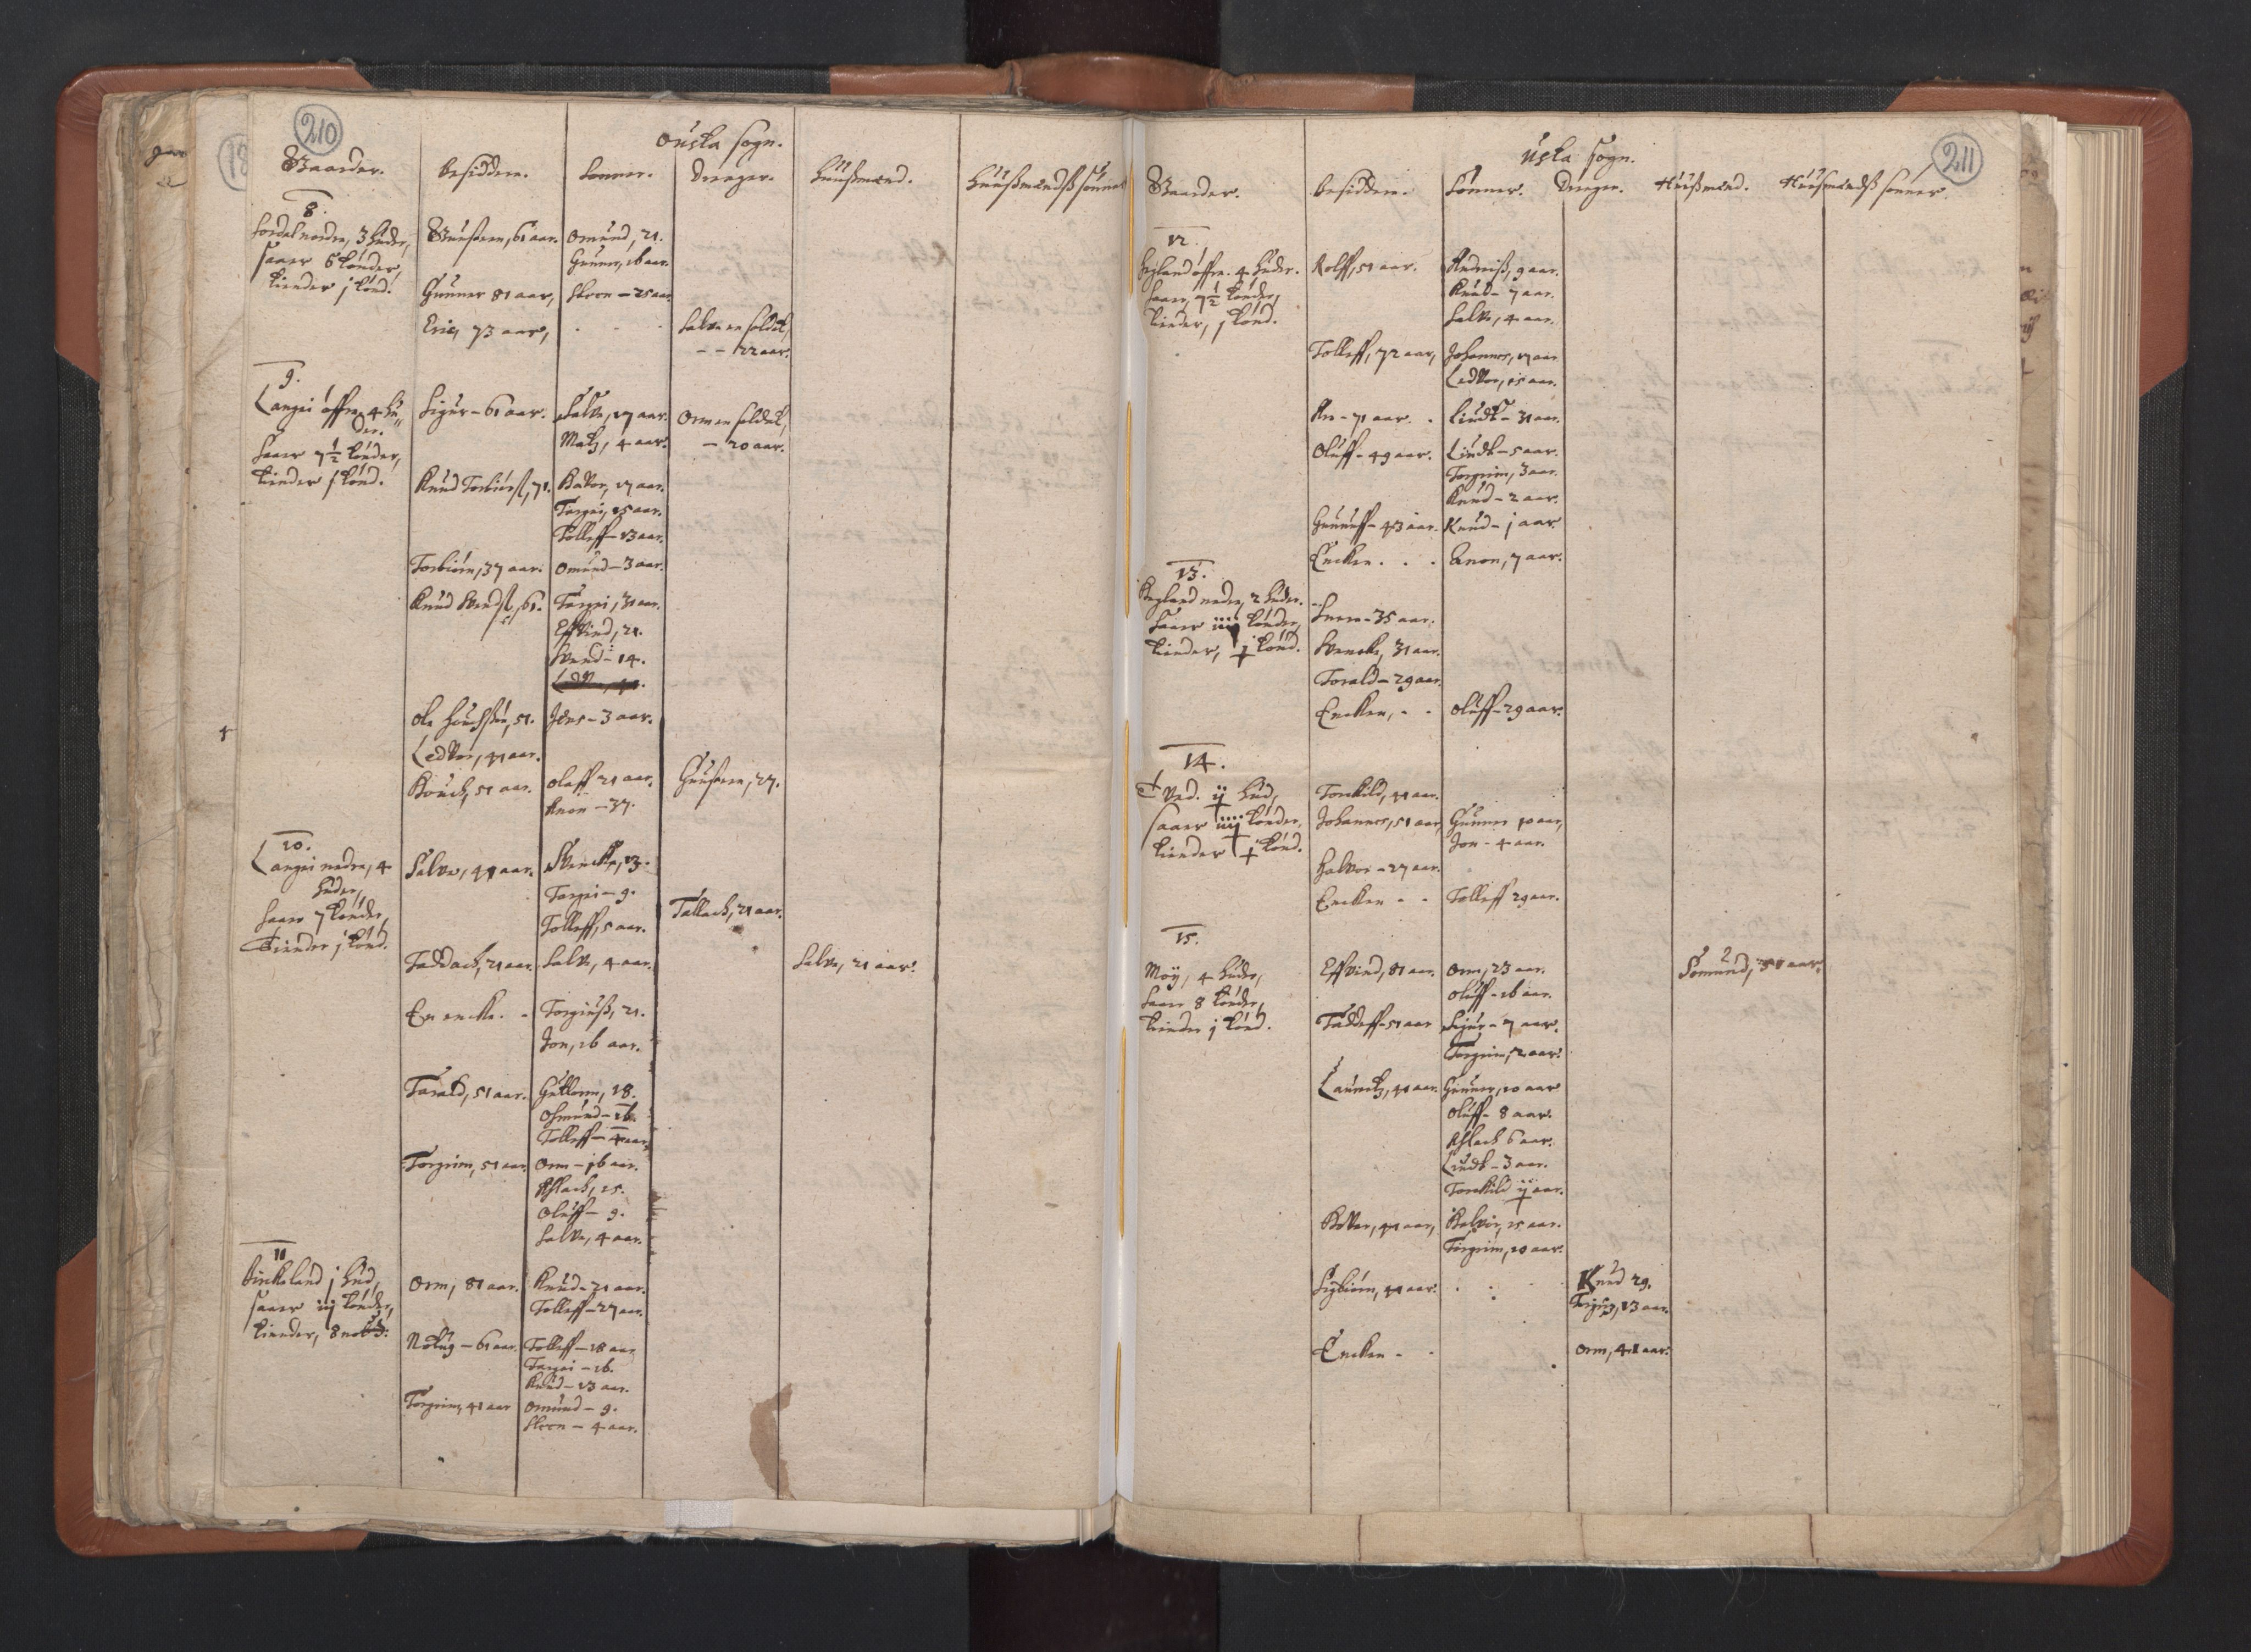 210
Ousta sogn.
Gaarder.
besiddere.
Sonner.
Drenger.
Huußmænd.
Huußmændß sonner
8.
nordre, 3 huder,
saaer 6 tønder,
tiender j tønd.
61 aar.
Omund, 21.
Gunner, 16 aar.
Gunner 81 aar,
Steen - 25 aar
Eric, 73 aar,
Salve en soldat,
- - 22 aar.
9.
Langei øffre, 4 hu-
der.
Saaer 7½ tønder,
tiender j tønd.
Sigur - 61 aar.
Salve, 17 aar.
Matz, 4 aar.
Orm en soldat,
- 20 aar.
Knud Torbiørß, 71.
17 aar.
Targei, 15 aar.
Tolleff - 13 aar.
Torbiørn, 37 aar.
Omund - 3 aar.
Knud Svendß, 61.
Targei, 31 aar.
Effvind, 21.
Svend - 14.
Ole 51.
Jens - 3 aar.
Ledvor, 41 aar.
51 aar.
Oleff 21 aar.
Anon - 37.
27.
10.
Langei nedre, 4
huder,
saaer 7 tønder,
Tiender j tønd.
Salve, 41 aar.
13.
Targei - 9.
Tolleff, 5 aar.
Tallach, 21 aar.
Taddach, 21 aar.
Salve, 4 aar.
Salve, 21 aar.
En encke. -
Torgiuß, 21.
Jon, 16 aar.
Tarald, 51 aar.
Guttorm, 18.
Osmund - 16.
Tolleff - 4 aar
Torgrim, 51 aar.
Orm - 16 aar.
Aslach, 15.
Oluff - 9.
Salve, 4 aar.
11
Birkeland j hud,
saaer iij tønder,
tiender, 8
Orm, 81 aar.
Knud - 21 aar.
Tolleff - 27 aar.
Notug - 61 aar.
Tolleff - 18 aar
Targei - 16.
Knud - 13 aar.
Torgrim, 41 aar
Omund - 9.
Steen - 4 aar.
211
Usta sogn.
Gaarder.
besiddere.
Sonner.
Drenger.
Huußmænd.
Huußmændß sonner.
12.
Hegland øffre. 4 huder.
Saaer, 7½ tønder,
tiender, j tønd.
Rolff, 51 aar.
Andreiß, 9 aar.
Knud - 7 aar.
Salve, 4 aar.
Tolleff, 72 aar,
Johannes, 17 aar
Ledvor, 15 aar.
An - 71 aar. .
Liudt - 31 aar.
Oluff - 49 aar.
Liudt - 5 aar.
Torgrim, 3 aar.
Knud - 2 aar.
Gunuff - 43 aar.
Knud - j aar
Encken. . .
Anon, 7 aar.
13.
Hegland nedre, 2 huder.
Saaer iiij tønder,
tiender, ½ tønd.
35 aar.
Svencke, 31 aar.
Torald - 29 aar.
Encken, - -
Oluff - 29 aar.
14.
Tved. ij hud,
saaer iiij tønder,
tiender ½ tønd.
Torckild, 41 aar.
Johannes, 51 aar,
Gunner 10 aar,
Jon - 4 aar.
Halvor - 27 aar.
Encken - -
Tolleff 29 aar.
15.
Moÿ, 4 huder,
saaer 8 tønder,
tiender j tønd.
Effvind, 81 aar.
Orm, 23 aar.
Oluff - 16 aar.
Somund, 51 aar
Taddeff - 51 aar
Sigur - 7 aar.
Torgrim, 2 aar.
Lauritz, 41 aar.
Gunner, 10 aar
Oluff - 8 aar.
Aslach 6 aar.
Liudt - 3 aar.
Torckild ij aar.
41 aar,
15 aar.
Torgrim, 10 aar.
Sigbiørn, 41 aar.
Knud 29.
Torgiuß, 13 aar.
Encken - -
Orm, 41 aar.